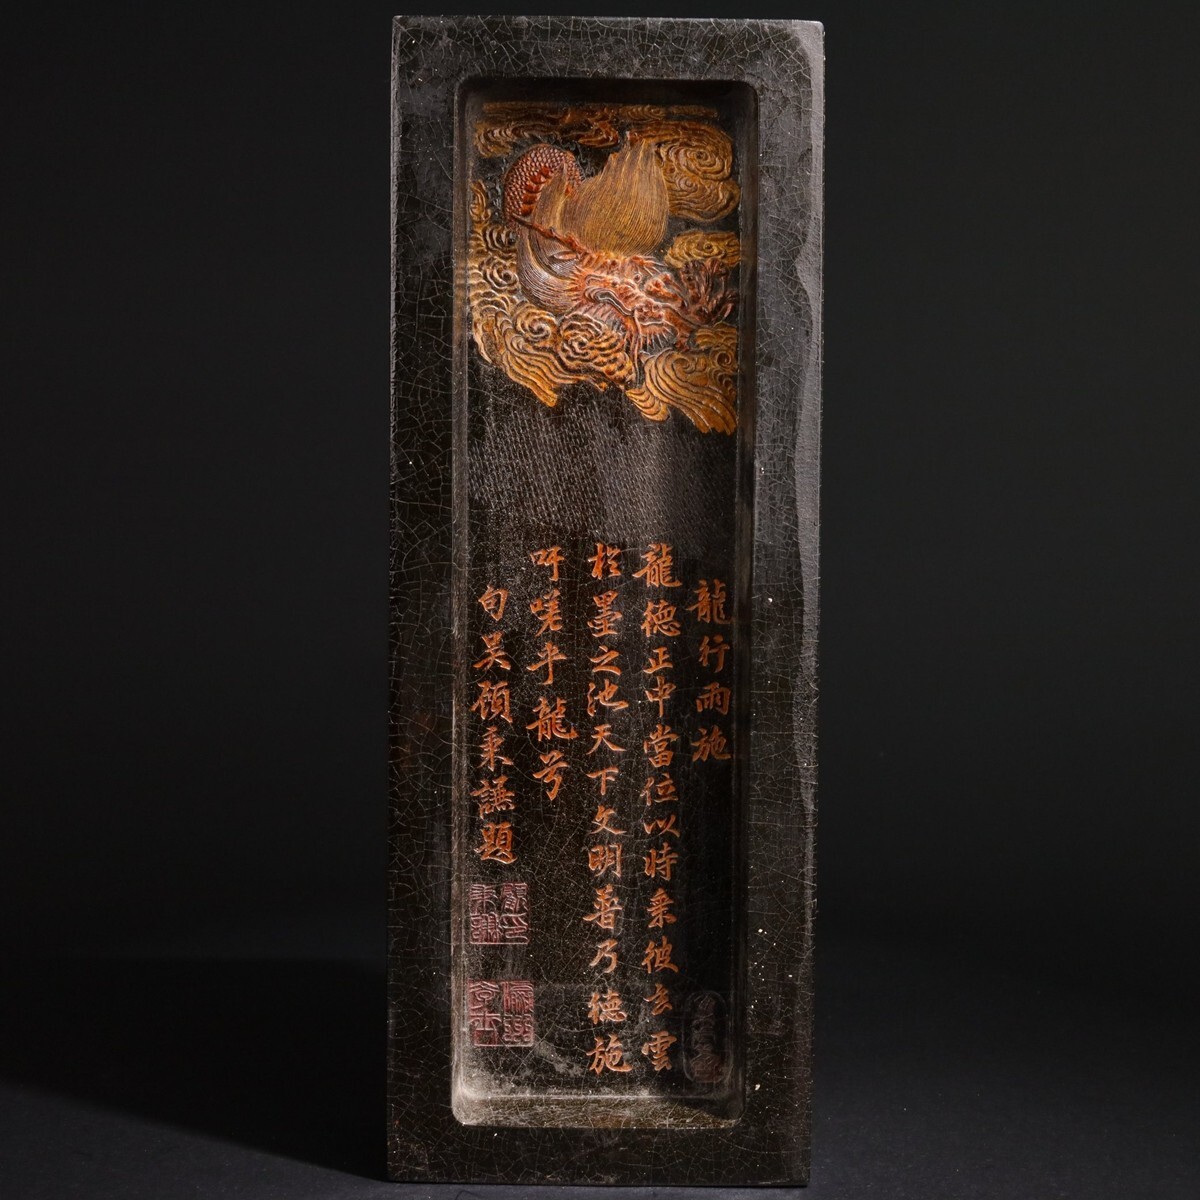 龍行雨施
龍德正中當位以時乘彼玄雲
於墨之池天下文明普乃德施
吁嗟乎龍兮
句吴顧秉謙題